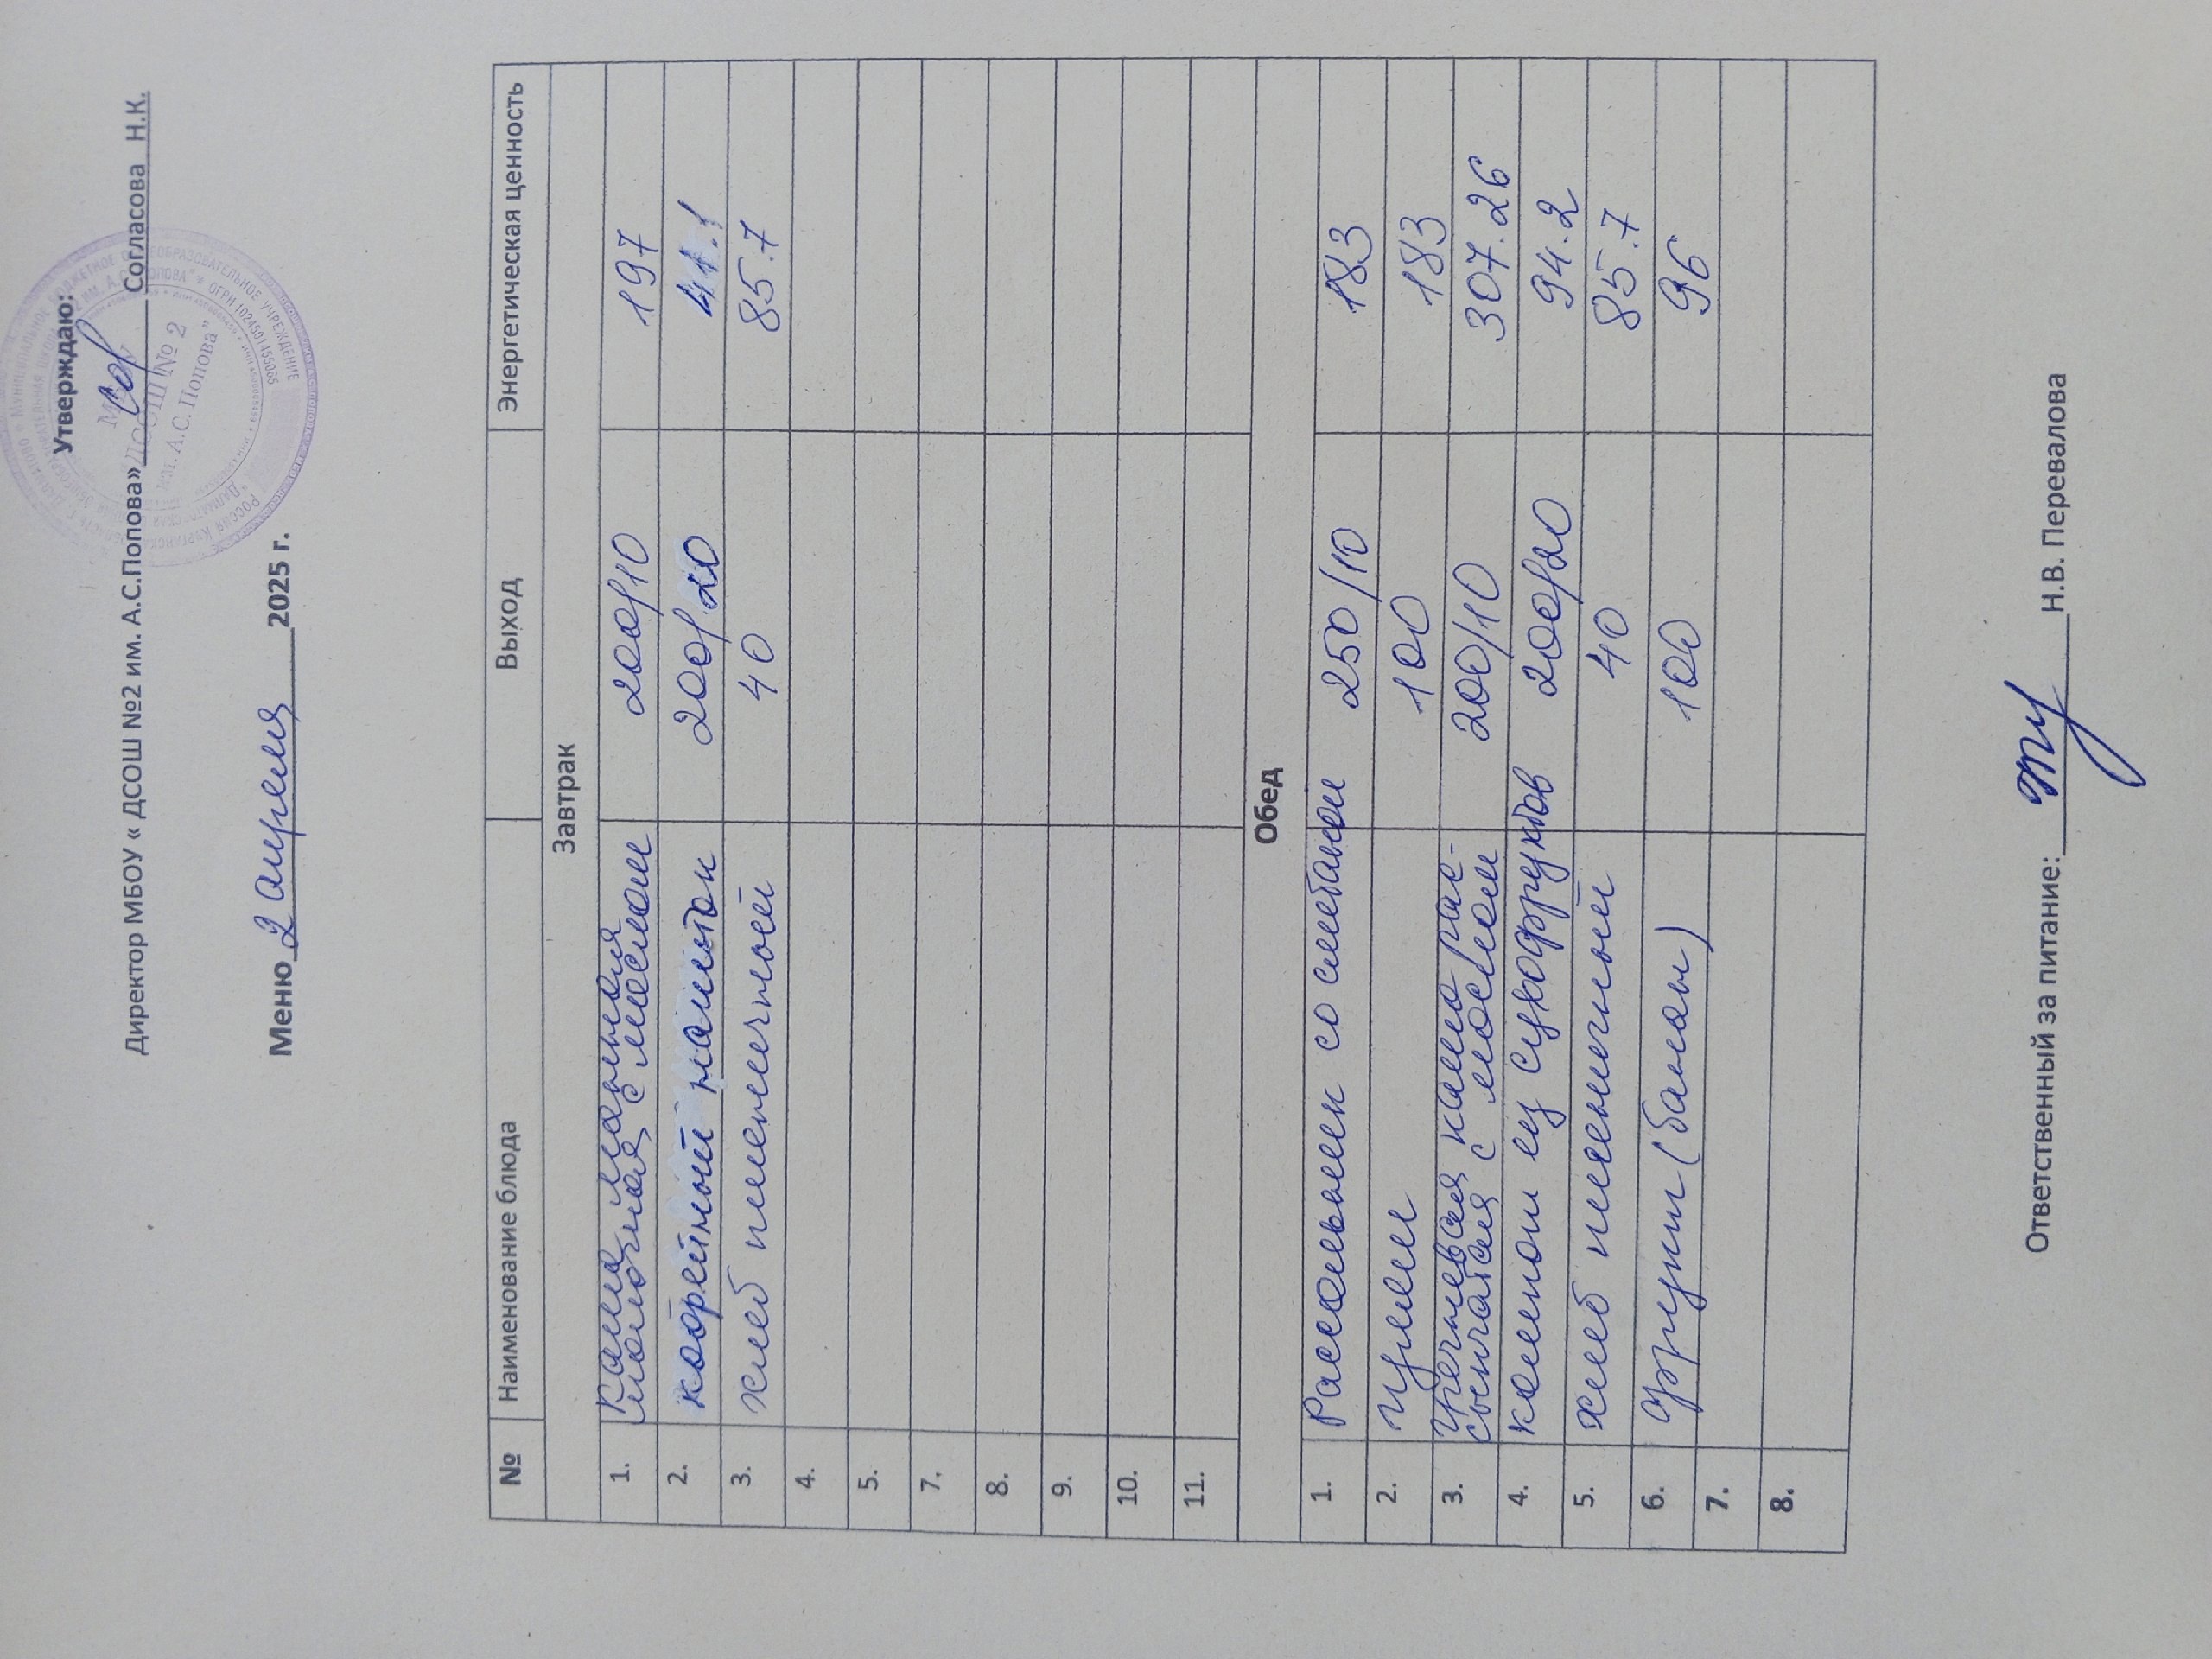 Утверждаю:
Директор МБОУ « ДСОШ №2 им. А.С.Попова»
Согласова Н.К.
Меню 2 апреля 2025 г.
№ Наименование блюда Выход Энергетическая ценность
Завтрак
1. Каша манная молочная с маслом 200/10 197
2. кофейный напиток 200/20 41.1
3. хлеб пшеничной 40 85.7
4.
5.
7.
8.
9.
10.
11.
Обед
1. Рассольник со сметаной 250/10 183
2. 100 183
3. Гречневая каша рассыпчатая с маслом 200/10 307.26
4. компот из сухофруктов 200/20 94.2
5. хлеб пшеничный 40 85.7
6. фрукты (банан) 100 96
7.
8.
Ответственный за питание: Н.В. Перевалова
ДСОШ № 2
им. А.С. Попова"